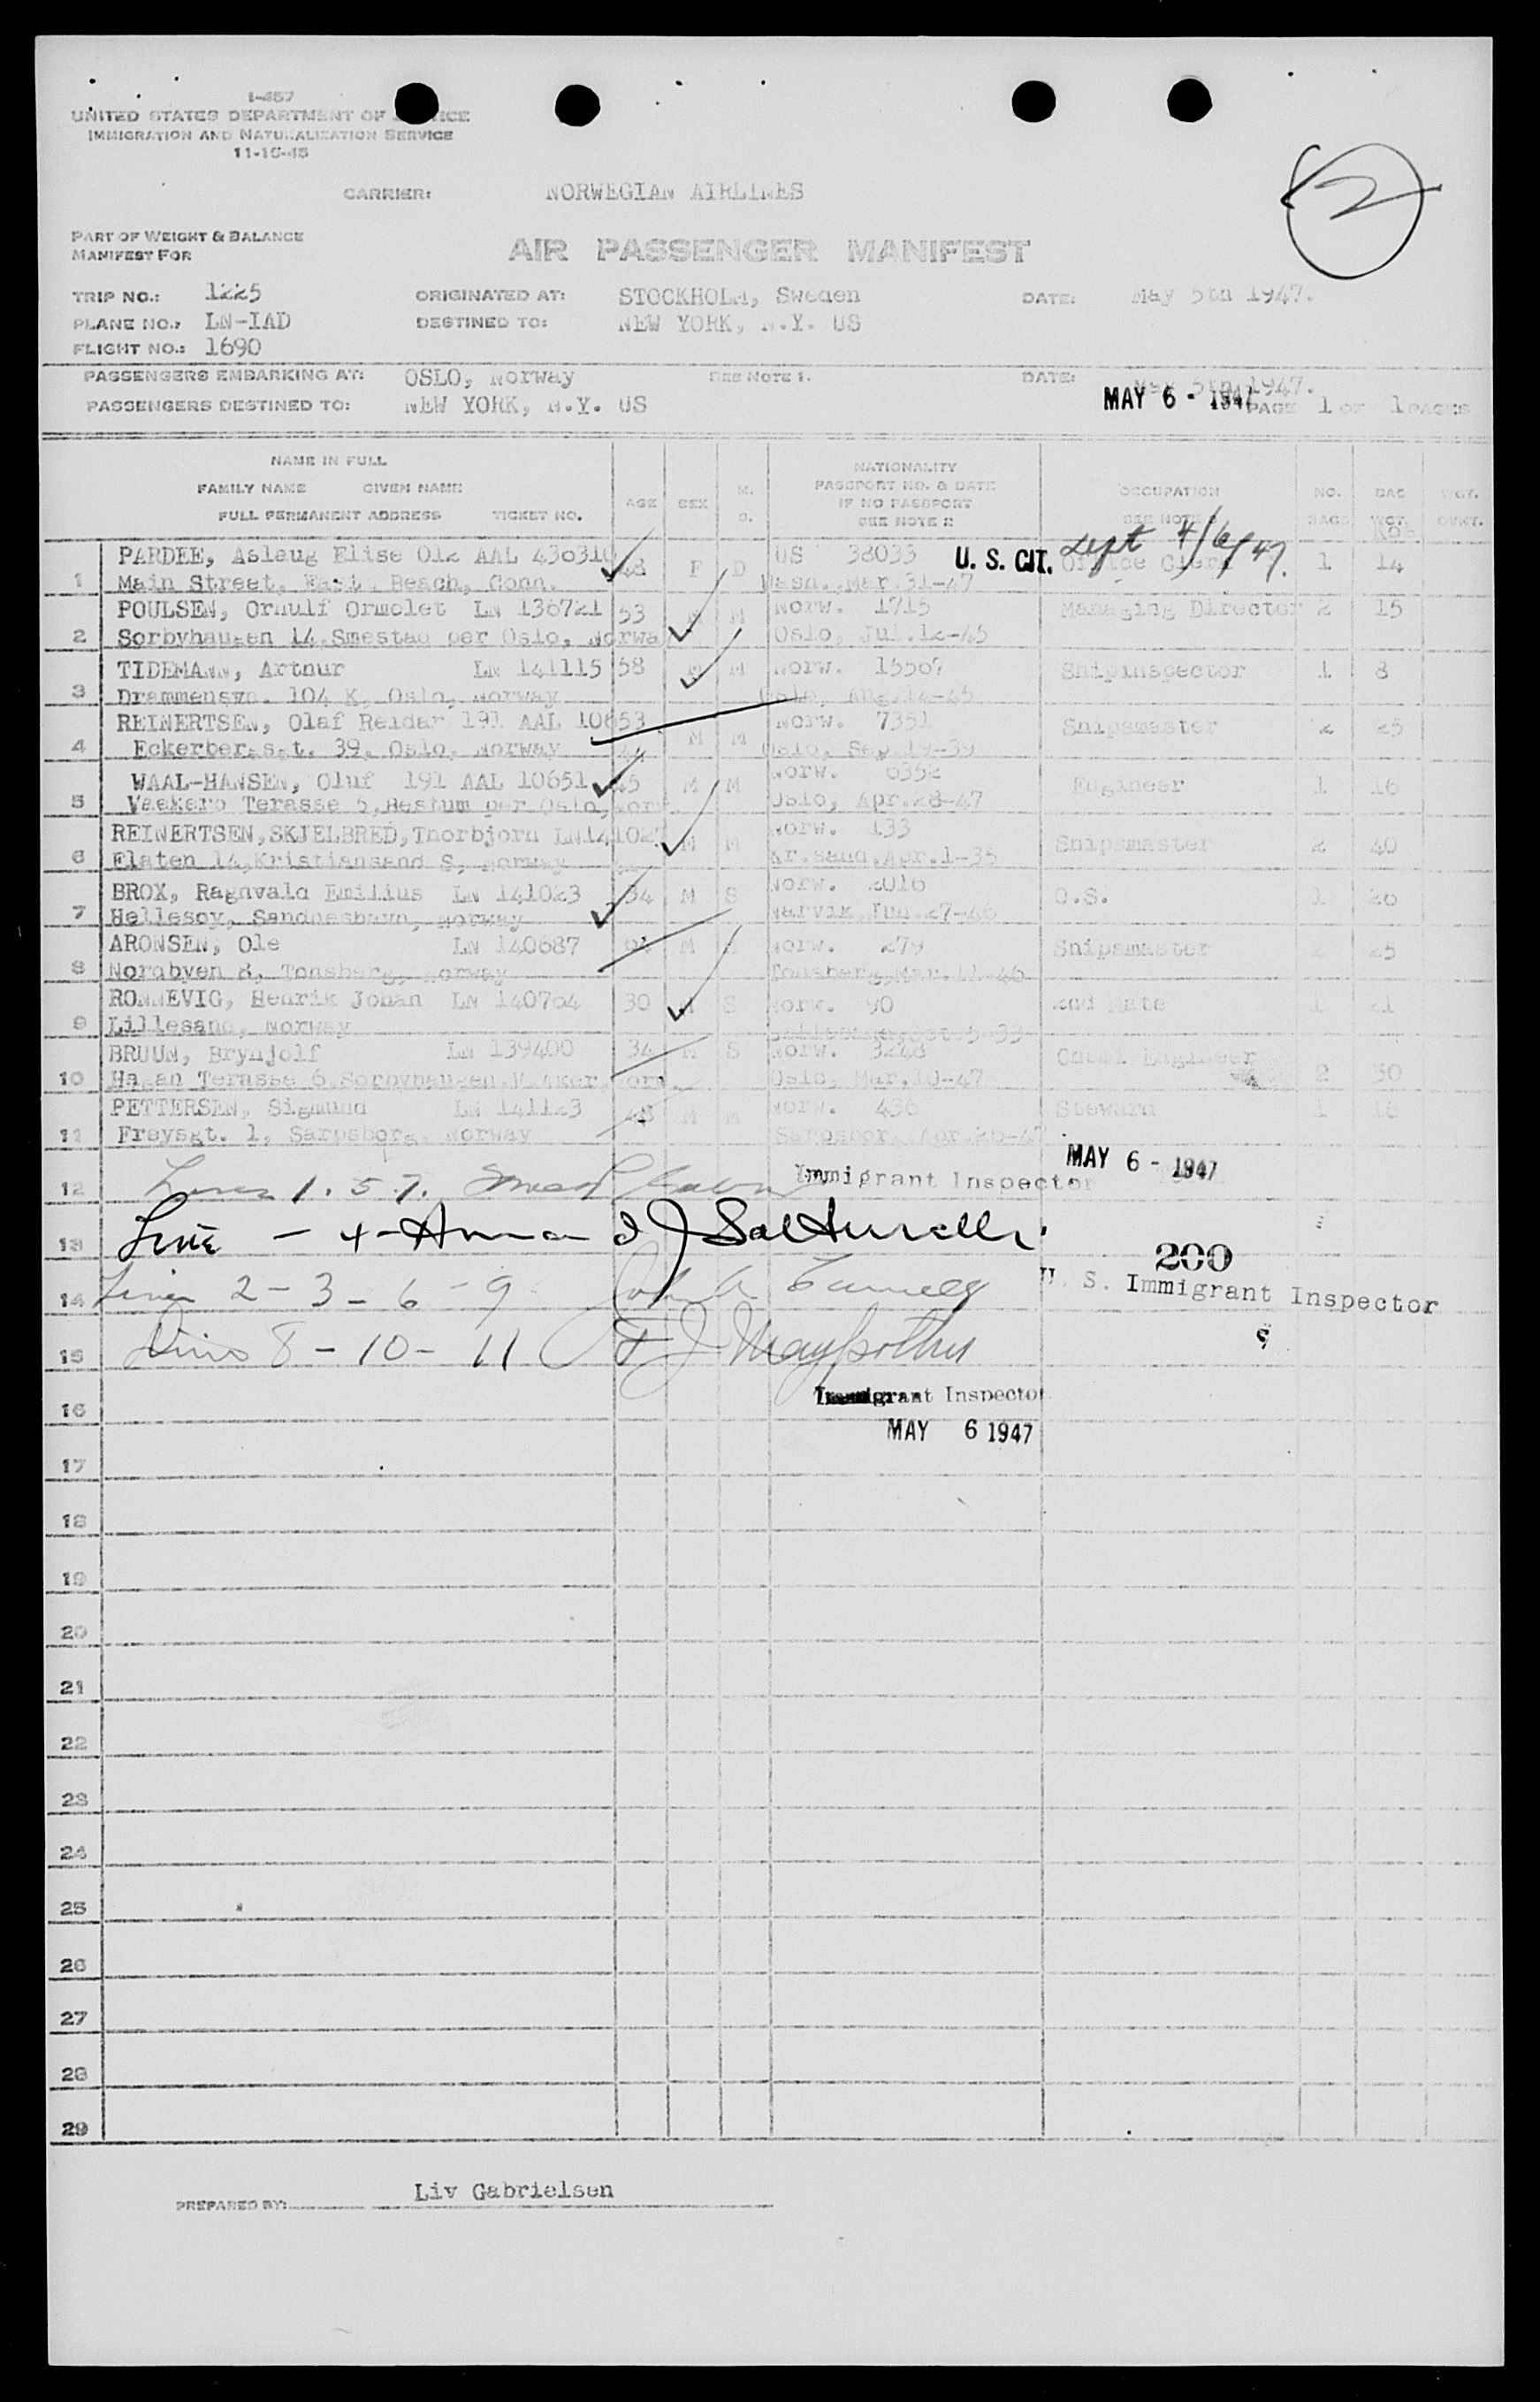 I-457
UNITED STATES DEPARTMENT OF JUSTICE
IMMIGRATION AND NATURALIZATION SERVICE
11-16-45
2
CARRIER: NORWEGIAN AIRLINES
PART OF WEIGHT & BALANCE
MANIFEST FOR
AIR PASSENGER MANIFEST
TRIP NO.: 1225 ORIGINATED AT: STOCKHOLM, Sweden DATE: May 5th 1947.
PLANE NO.: LN-IAD DESTINED TO: NEW YORK, N.Y. US
FLIGHT NO.: 1690
PASSENGERS EMBARKING AT: OSLO, Norway SEE NOTE 1. DATE: May 5th 1947.
PASSENGERS DESTINED TO: NEW YORK, N.Y. US MAY 6 - 1947 PAGE 1 OF 1 PAGES
NAME IN FULL
FAMILY NAME GIVEN NAME
FULL PERMANENT ADDRESS TICKET NO.
AGE SEX M. S.
NATIONALITY
PASSPORT NO. & DATE
IF NO PASSPORT
SEE NOTE 2
OCCUPATION
SEE NOTE
NO. BAGS BAG WGT. WGT. OVWT.
Kos
PARDEE, Aslaug Elise 012 AAL 430310 48 F D US 38033 U. S. CIT. Sept 4/6/47. Office Clerk 1 14
1 Main Street, Beach, Conn. Wash., Mar.31-47
POULSEN, Ornulf Ormolet LN 136721 53 M M Norw. 1715 Managing Director 2 15
2 Sorbyhaugen 14, Smestad per Oslo, Norway Oslo, Jul.12-45
TIDEMANN, Arthur LN 141115 58 M M Norw. 15567 Shipinspector 1 8
3 Drammensvn. 104 K, Oslo, Norway Oslo, Aug.14-45
REINERTSEN, Olaf Reidar 191 AAL 10653 M M Norw. 7351 Shipsmaster 2 25
4 Eckerbergs.t. 39, Oslo, Norway Oslo, Sep.19-39
WAAL-HANSEN, Oluf 191 AAL 10651 45 M M Norw. 6352 Engineer 1 16
5 Vaekero Terasse 5, Bestum per Oslo, Norw. Oslo, Apr.28-47
REINERTSEN, SKJELBRED, Thorbjorn LN 141027 M M Norw. 133 Shipsmaster 2 40
6 Flaten 14, Kristiansand S, Norway Kr.sand, Apr.1-35
BROX, Ragnvald Emilius LN 141023 34 M S Norw. 2016 O.S. 1 20
7 Hellesoy, Sandneshavn, Norway Narvik, Jun.27-46
ARONSEN, Ole LN 140687 M Norw. 279 Shipsmaster 2 25
8 Nordbyen 8, Tonsberg, Norway Tonsberg, Mar.11-46
RONNEVIG, Henrik Johan LN 140764 30 M S Norw. 90 2nd Mate 1 21
9 Lillesand, Norway
BRUUN, Brynjolf LN 139400 34 M S Norw. 3248 Chief Engineer 2 30
10 Hagan Terasse 6, Sorbyhaugen V. Aker Norw. Oslo, Mar.10-47
PETTERSEN, Sigmund LN 141123 48 M M Norw. 436 Steward 1 16
11 Freysgt. 1, Sarpsborg, Norway Sarpsborg, Apr.26-47
12 Lines 1. 5 7. Immigrant Inspector MAY 6 - 1947
13 Line - 4 - Anna J Salturelli
200
14 Lines 2 - 3 - 6 - 9 John A U. S. Immigrant Inspector
15 Lines 8 - 10 - 11 F J
16 Immigrant Inspector
MAY 6 1947
17
18
19
20
21
22
23
24
25
26
27
28
29
PREPARED BY: Liv Gabrielsen